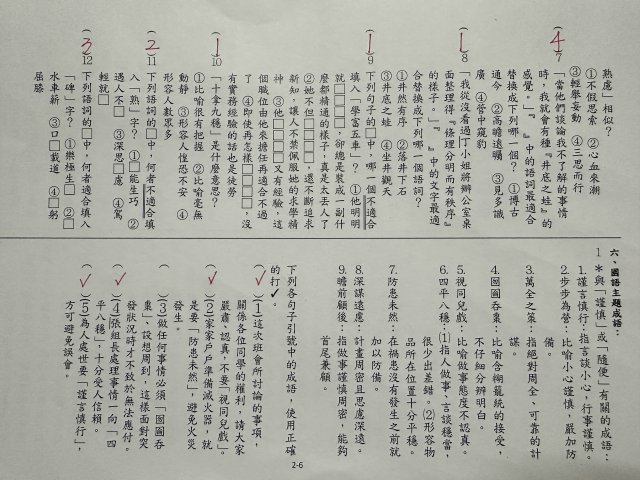 熟慮」相似？
①不假思索　②心血來潮
③輕舉妄動　④三思而行
(4)7「當他們談論我不了解的事情
時，我就會有種『井底之蛙』的
感覺。」『　』中的語詞最適合
替換成下列哪一個？①博古
通今　②高瞻遠矚　③見多識
廣　④管中窺豹
(1)8「我從沒看過丁小姐將辦公室桌
面整理得『條理分明而有秩序』
的樣子。」『　』中的文字最適
合替換成下列哪一個語詞？
①井然有序　②落井下石
③井底之蛙　④坐井觀天
(1)9下列句子的□中，哪一個不適合
填入「學富五車」？①他明明
就□□□□，卻總是裝成一副什
麼都精通的樣子，真是太丟人了
②她不但□□□□，還不斷追求
新知，讓人不禁佩服她的求學精
神③他□□□□又有經驗，這
個職位由他來擔任再適合不過
了④即使再怎樣□□□□，沒
有實務經驗的話也是徒勞
(1)10「十拿九穩」是什麼意思？
①比喻很有把握　②比喻毫無
動靜　③形容人惶恐不安　④
形容人數眾多
(2)11下列語詞的□中，何者不適合填
入「熟」字？①□能生巧　②
遇人不□　③深思□慮　④駕
輕就□
(3)12下列語詞的□中，何者適合填入
「碑」字？①樂極生□　②□
水車薪　③口□載道　④□躬
屈膝
六、國語主題成語：
1＊與「謹慎」或「隨便」有關的成語：
1.謹言慎行：指言談小心，行事謹慎。
2.步步為營：比喻小心謹慎，嚴加防
備。
3.萬全之策：指絕對周全、可靠的計
謀。
4.囫圇吞棗：比喻含糊籠統的接受，
不仔細分辨明白。
5.視同兒戲：比喻做事態度不認真。
6.四平八穩：⑴指人做事、言談穩當，
很少出差錯。⑵形容物
品所在位置十分平穩。
7.防患未然：在禍患沒有發生之前就
加以防備。
8.深謀遠慮：計畫周密且思慮深遠。
9.瞻前顧後：指做事謹慎周密，能夠
首尾兼顧。
下列各句子引號中的成語，使用正確
的打✓。
(✓)⑴這次班會所討論的事項，
關係各位同學的權利，請大家
嚴肅、認真，不要「視同兒戲」。
(✓)⑵家家戶戶準備滅火器，就
是要「防患未然」，避免火災
發生。
(　)⑶做任何事情必須「囫圇吞
棗」、設想周到，這樣面對突
發狀況時才不致於無法應付。
(✓)⑷張組長處理事情一向「四
平八穩」，十分受人信賴。
(✓)⑸為人處世要「謹言慎行」，
方可避免誤會。
2-6